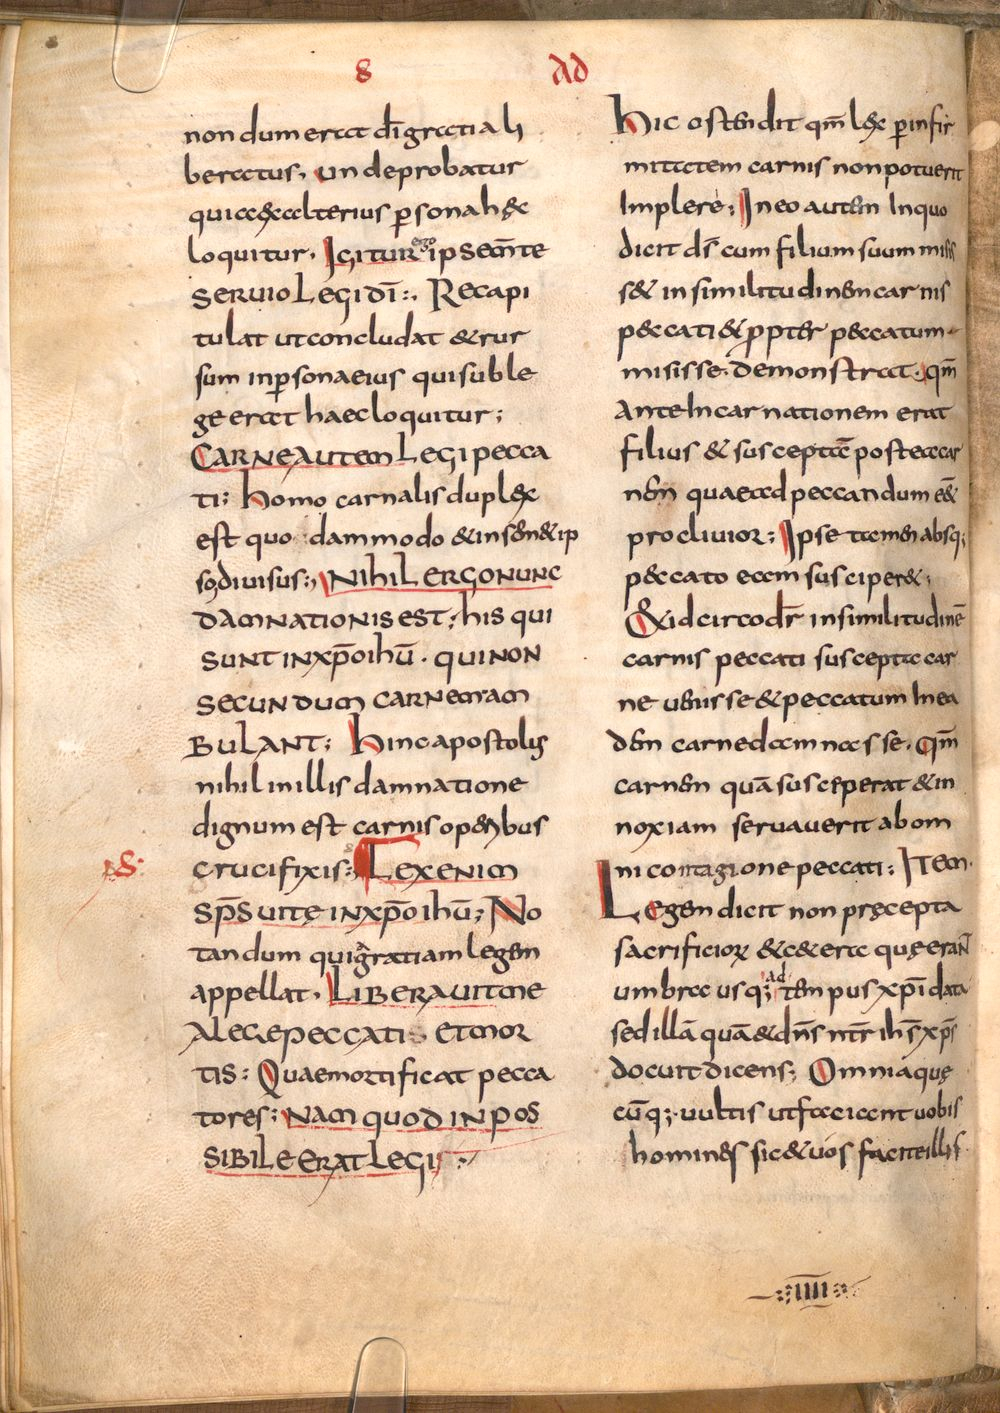 8 ad
non dum erat dī gratia li
beratus, unde probatur
quia ex alterius p̱sona hęc
loquitur. Igitur ego ipse m̄te
servio legi dī:, Recapi
tulat ut concludat & rur
sum in p̱sona eius qui sub le
ge erat haec loquitur;
Carne autem legi pecca
ti: homo carnalis duplex
est quo dammodo & in sem& ip
so divisus:, Nihil ergo nunc
damnationis est; his qui
sunt in xp̄o ihū. qui non
secundum carnem am
bulant; hinc apostolus
nihil in illis damnatione
dignum est carnis operibus
crucifixis; Lex enim
8·
sp̄s vitę in xp̄o ihū; No
tandum quia gratiam legem
appellat, Liberavit me
a lege peccati et mor
tis: Quae mortificat pecca
tores: Nam quod inpos
sibile erat legis
hic ostendit qm̄ lex p̱ infir
mitatem carnis non potuerit
Implere; In eo autem In quo
dicit ds̄ cum filium suum miss
s& in similitudinem carnis
peccati & p̱pter peccatum
misisse. demonstrat. qm̄
Ante Incarnationem erat
filius & susceptā postea car
nem quae ad peccandum e&
proclivior; Ipse tamen absq;
peccato eam susciper&;
& idcirco dr̄ in similitudinē
carnis peccati suscepta car
ne venisse & peccatum In ea
dem carne damnasse. qm̄
carnem quā susceperat & in
noxiam servaverit ab om
ni contagione peccati: Item
Legem dicit non pręcepta
sacrificiorum & cetera quę erant
umbra usq; ad tempus xp̄i data
sed illā quā & dn̄s ntr̄ ihs̄ xp̄s
docuit dicens; Omnia quę
cūq; vultis ut faciant vobis
homines sic & vos facite illis
IIII